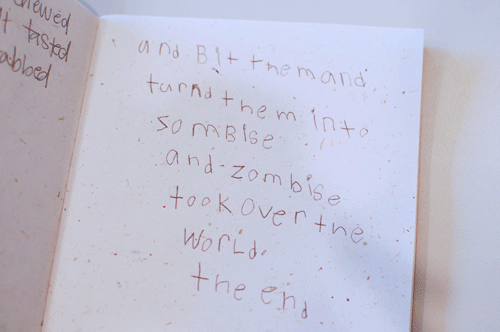 hewed
t tasted
abbed
and Bit them and
turnd them into
somBise
and zombise
took over the
world.
the end